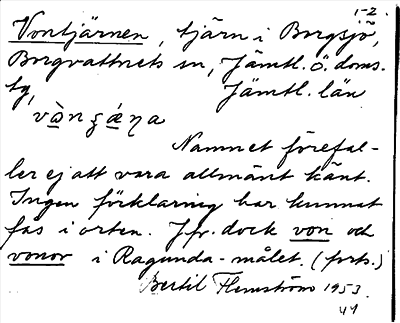 1-2.
Vontjärnen, tjärn i Borgsjö,
Borgvattnets sn, Jämtl. ö. doms.
tg, Jämtl. län
Namnet förefal-
ler ej att vara allmänt känt.
Ingen förklaring har kunnat
fås i orten. Jfr. dock von och
vonor i Ragunda-målet. (forts.)
Bertil Flemström 1953.